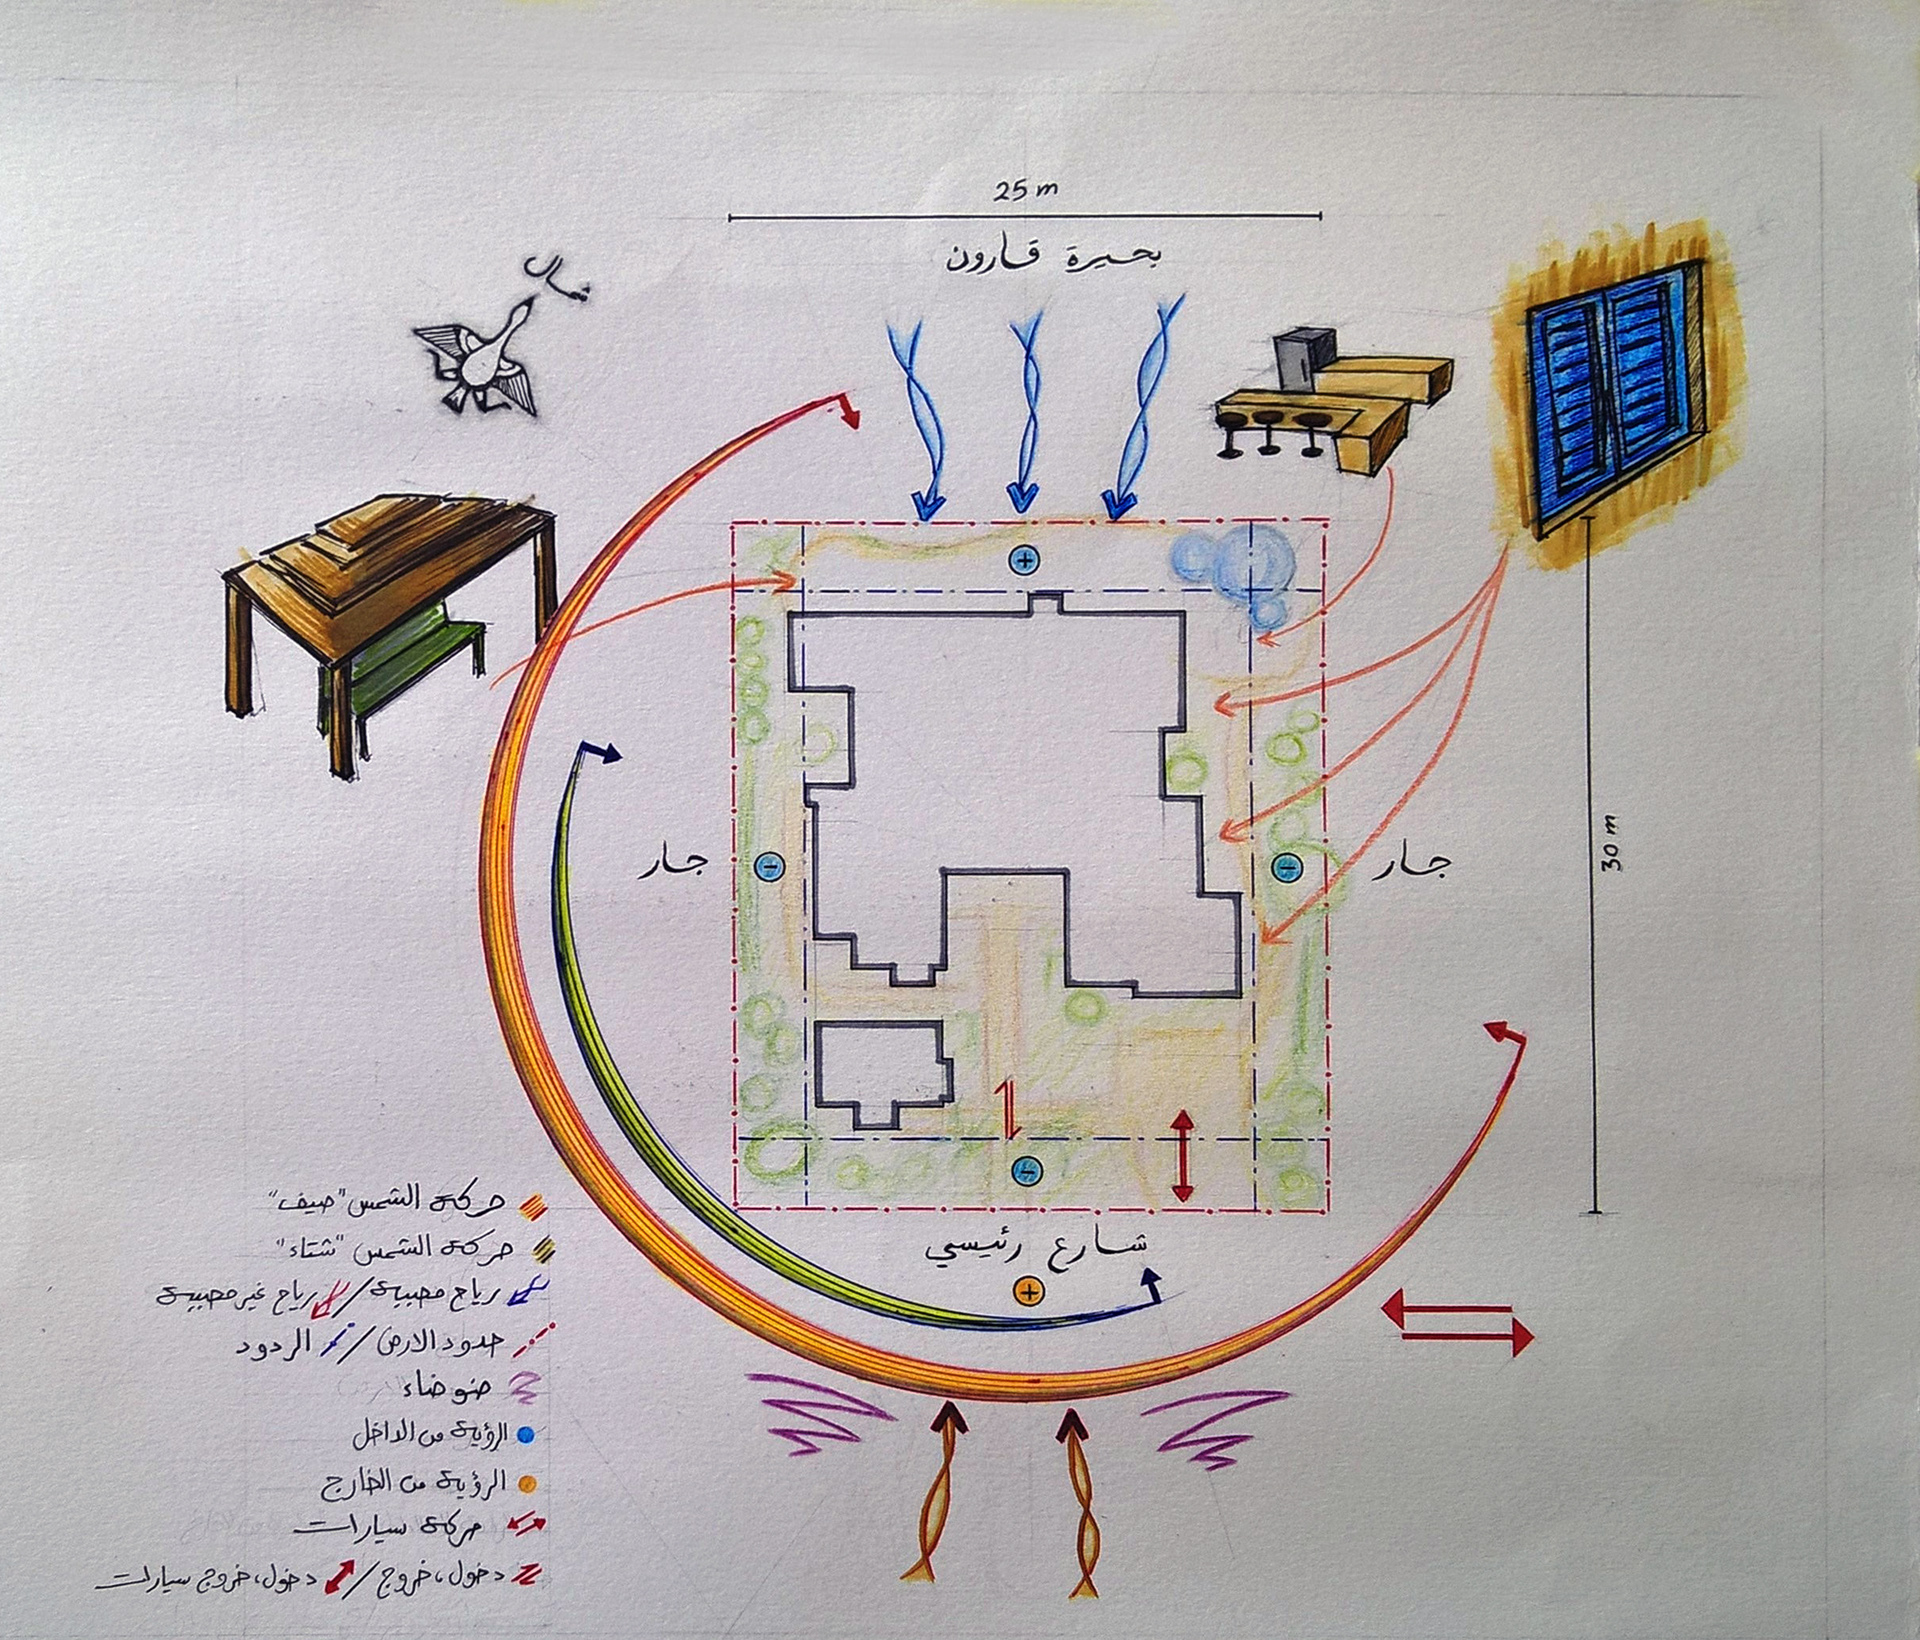 25 m
بحيرة قارون
شمال
جار
جار
30 m
شارع رئيسي
حركة الشمس "صيف"
حركة الشمس "شتاء"
رياح محببة / رياح غير محببة
حدود الارض / الردود
ضوضاء
الرؤية من الداخل
الرؤية من الخارج
حركة سيارات
دخول، خروج / دخول، خروج سيارات